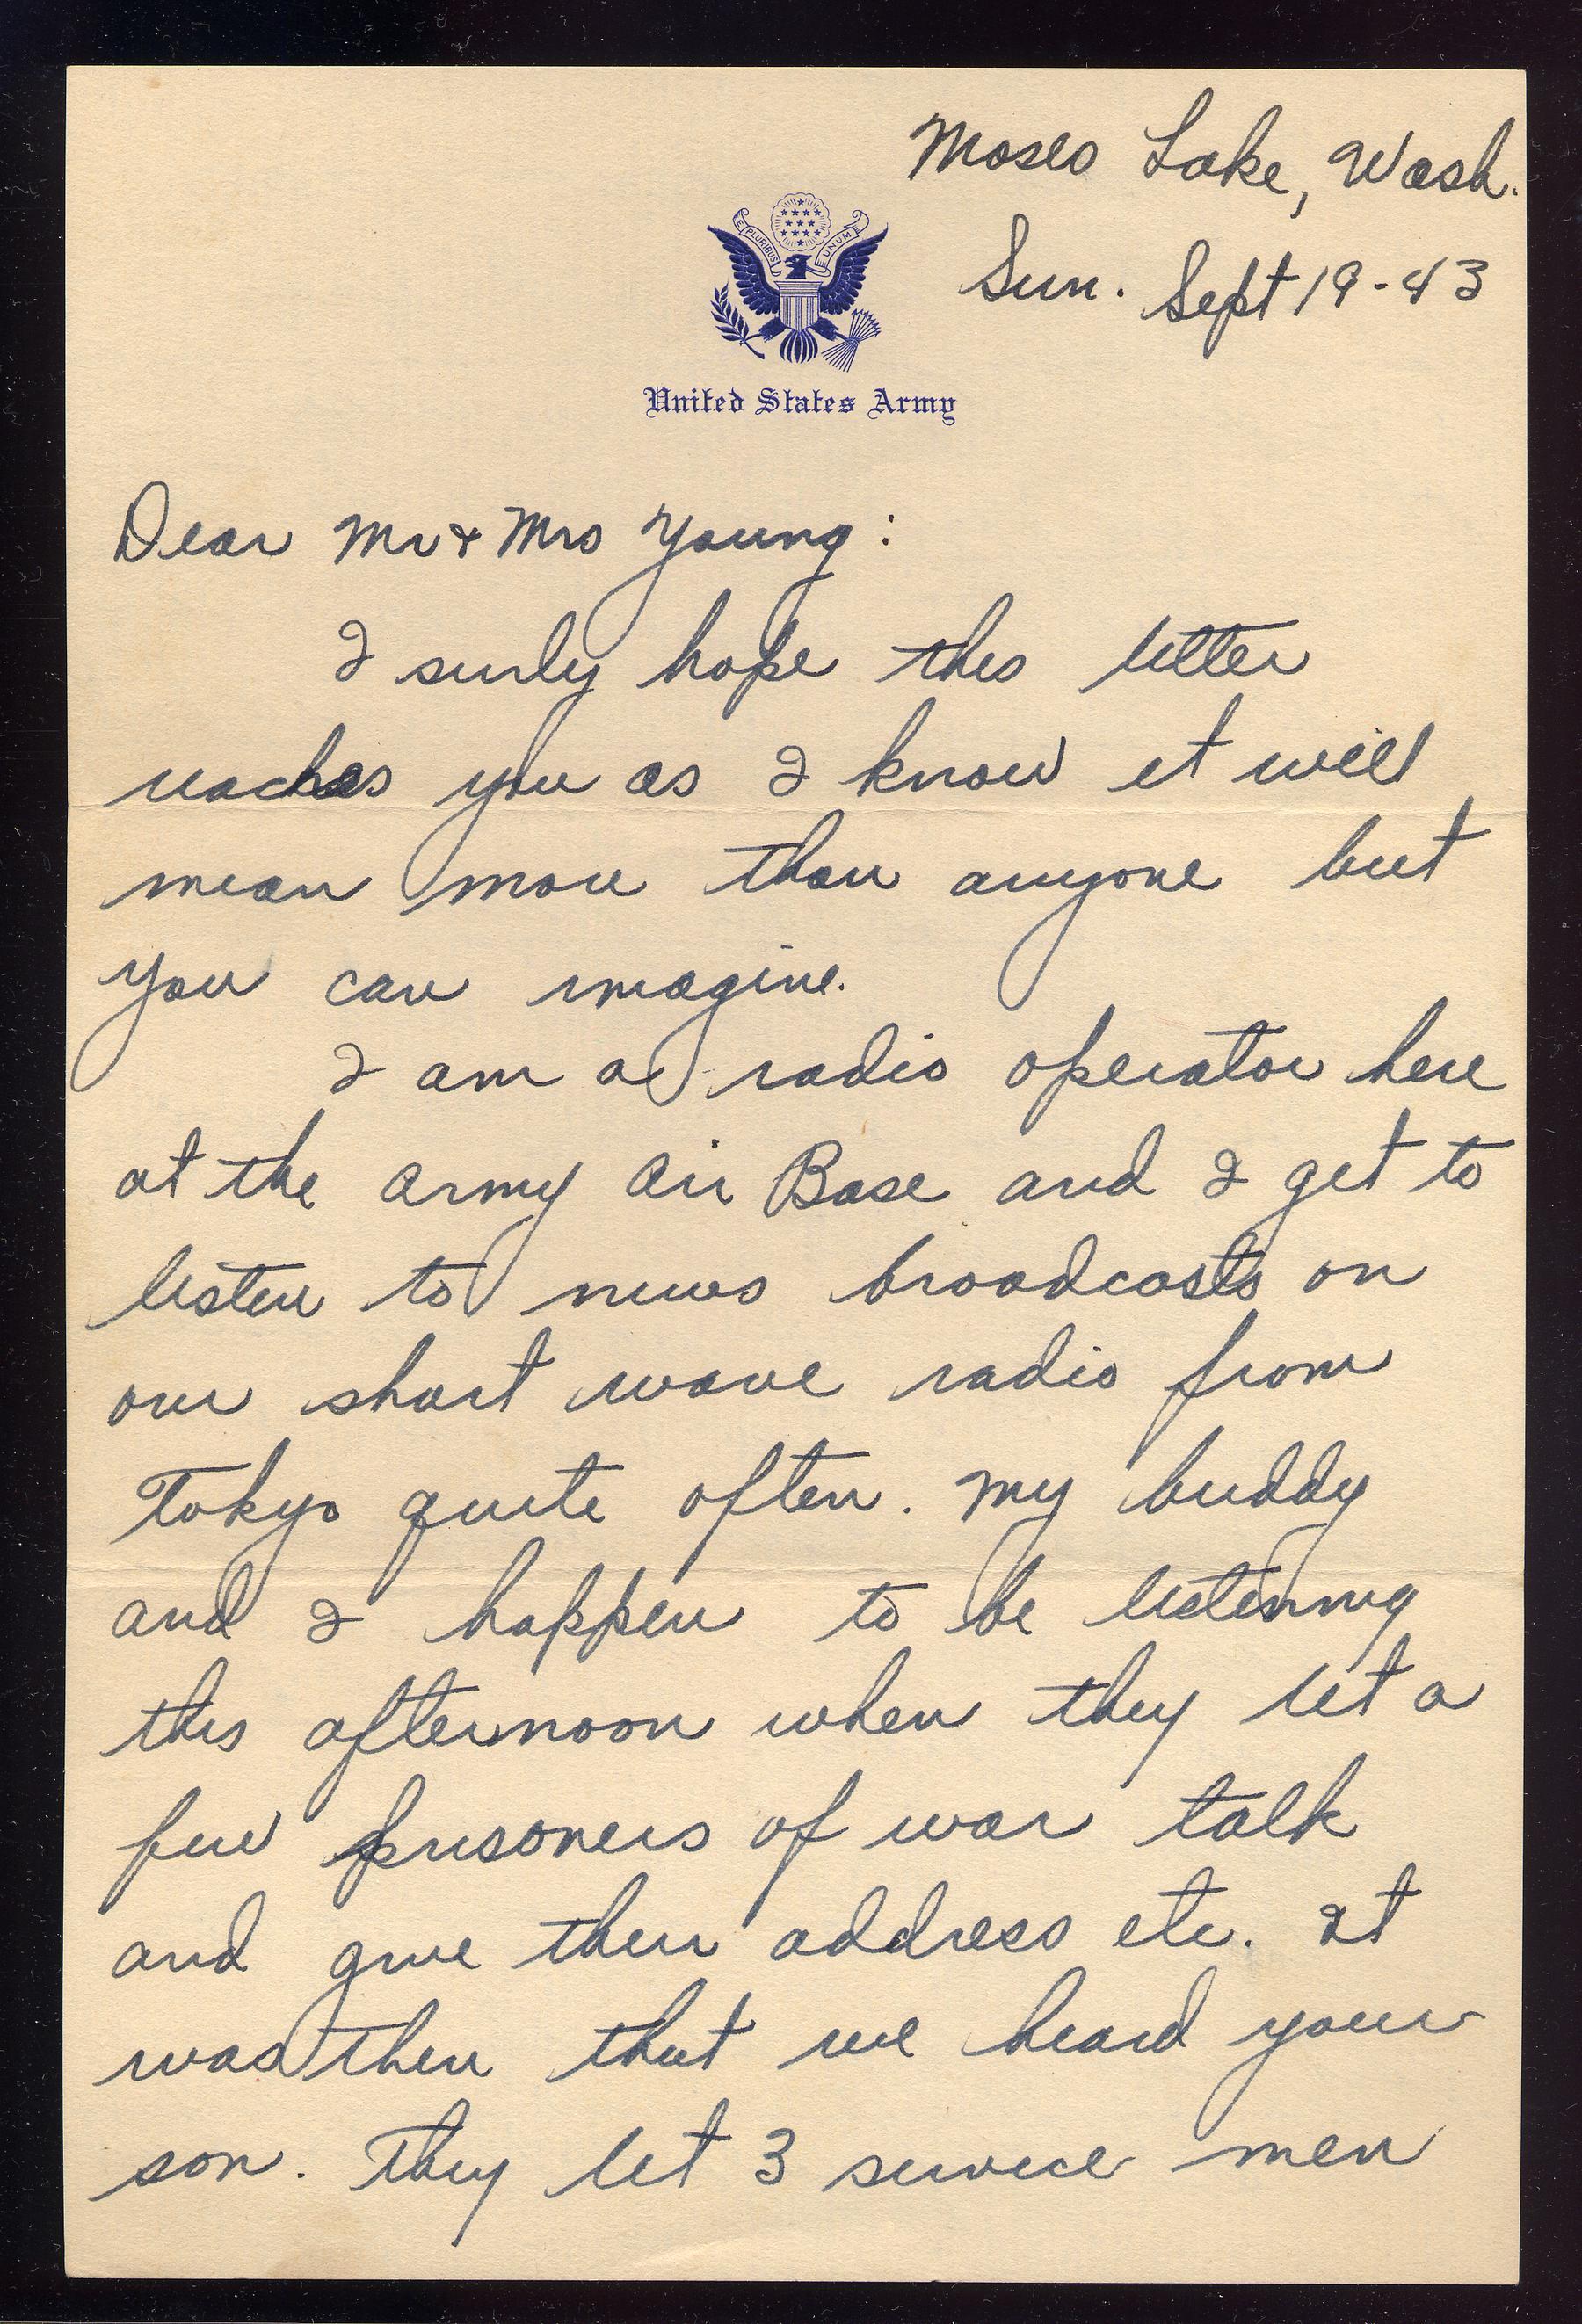 Moses Lake, Wash.
Sun. Sept 19-43
E PLURIBUS UNUM
United States Army
Dear Mr + Mrs Young:
I surly hope this letter
reaches you as I know it will
mean more than anyone but
you can imagine.
I am a radio operator here
at the army air Base and I get to
listen to news broadcasts on
our short wave radio from
Tokyo quite often. My buddy
and I happen to be listening
this afternoon when they let a
few prisoners of war talk
and give their address etc. It
was then that we heard your
son. They let 3 service men